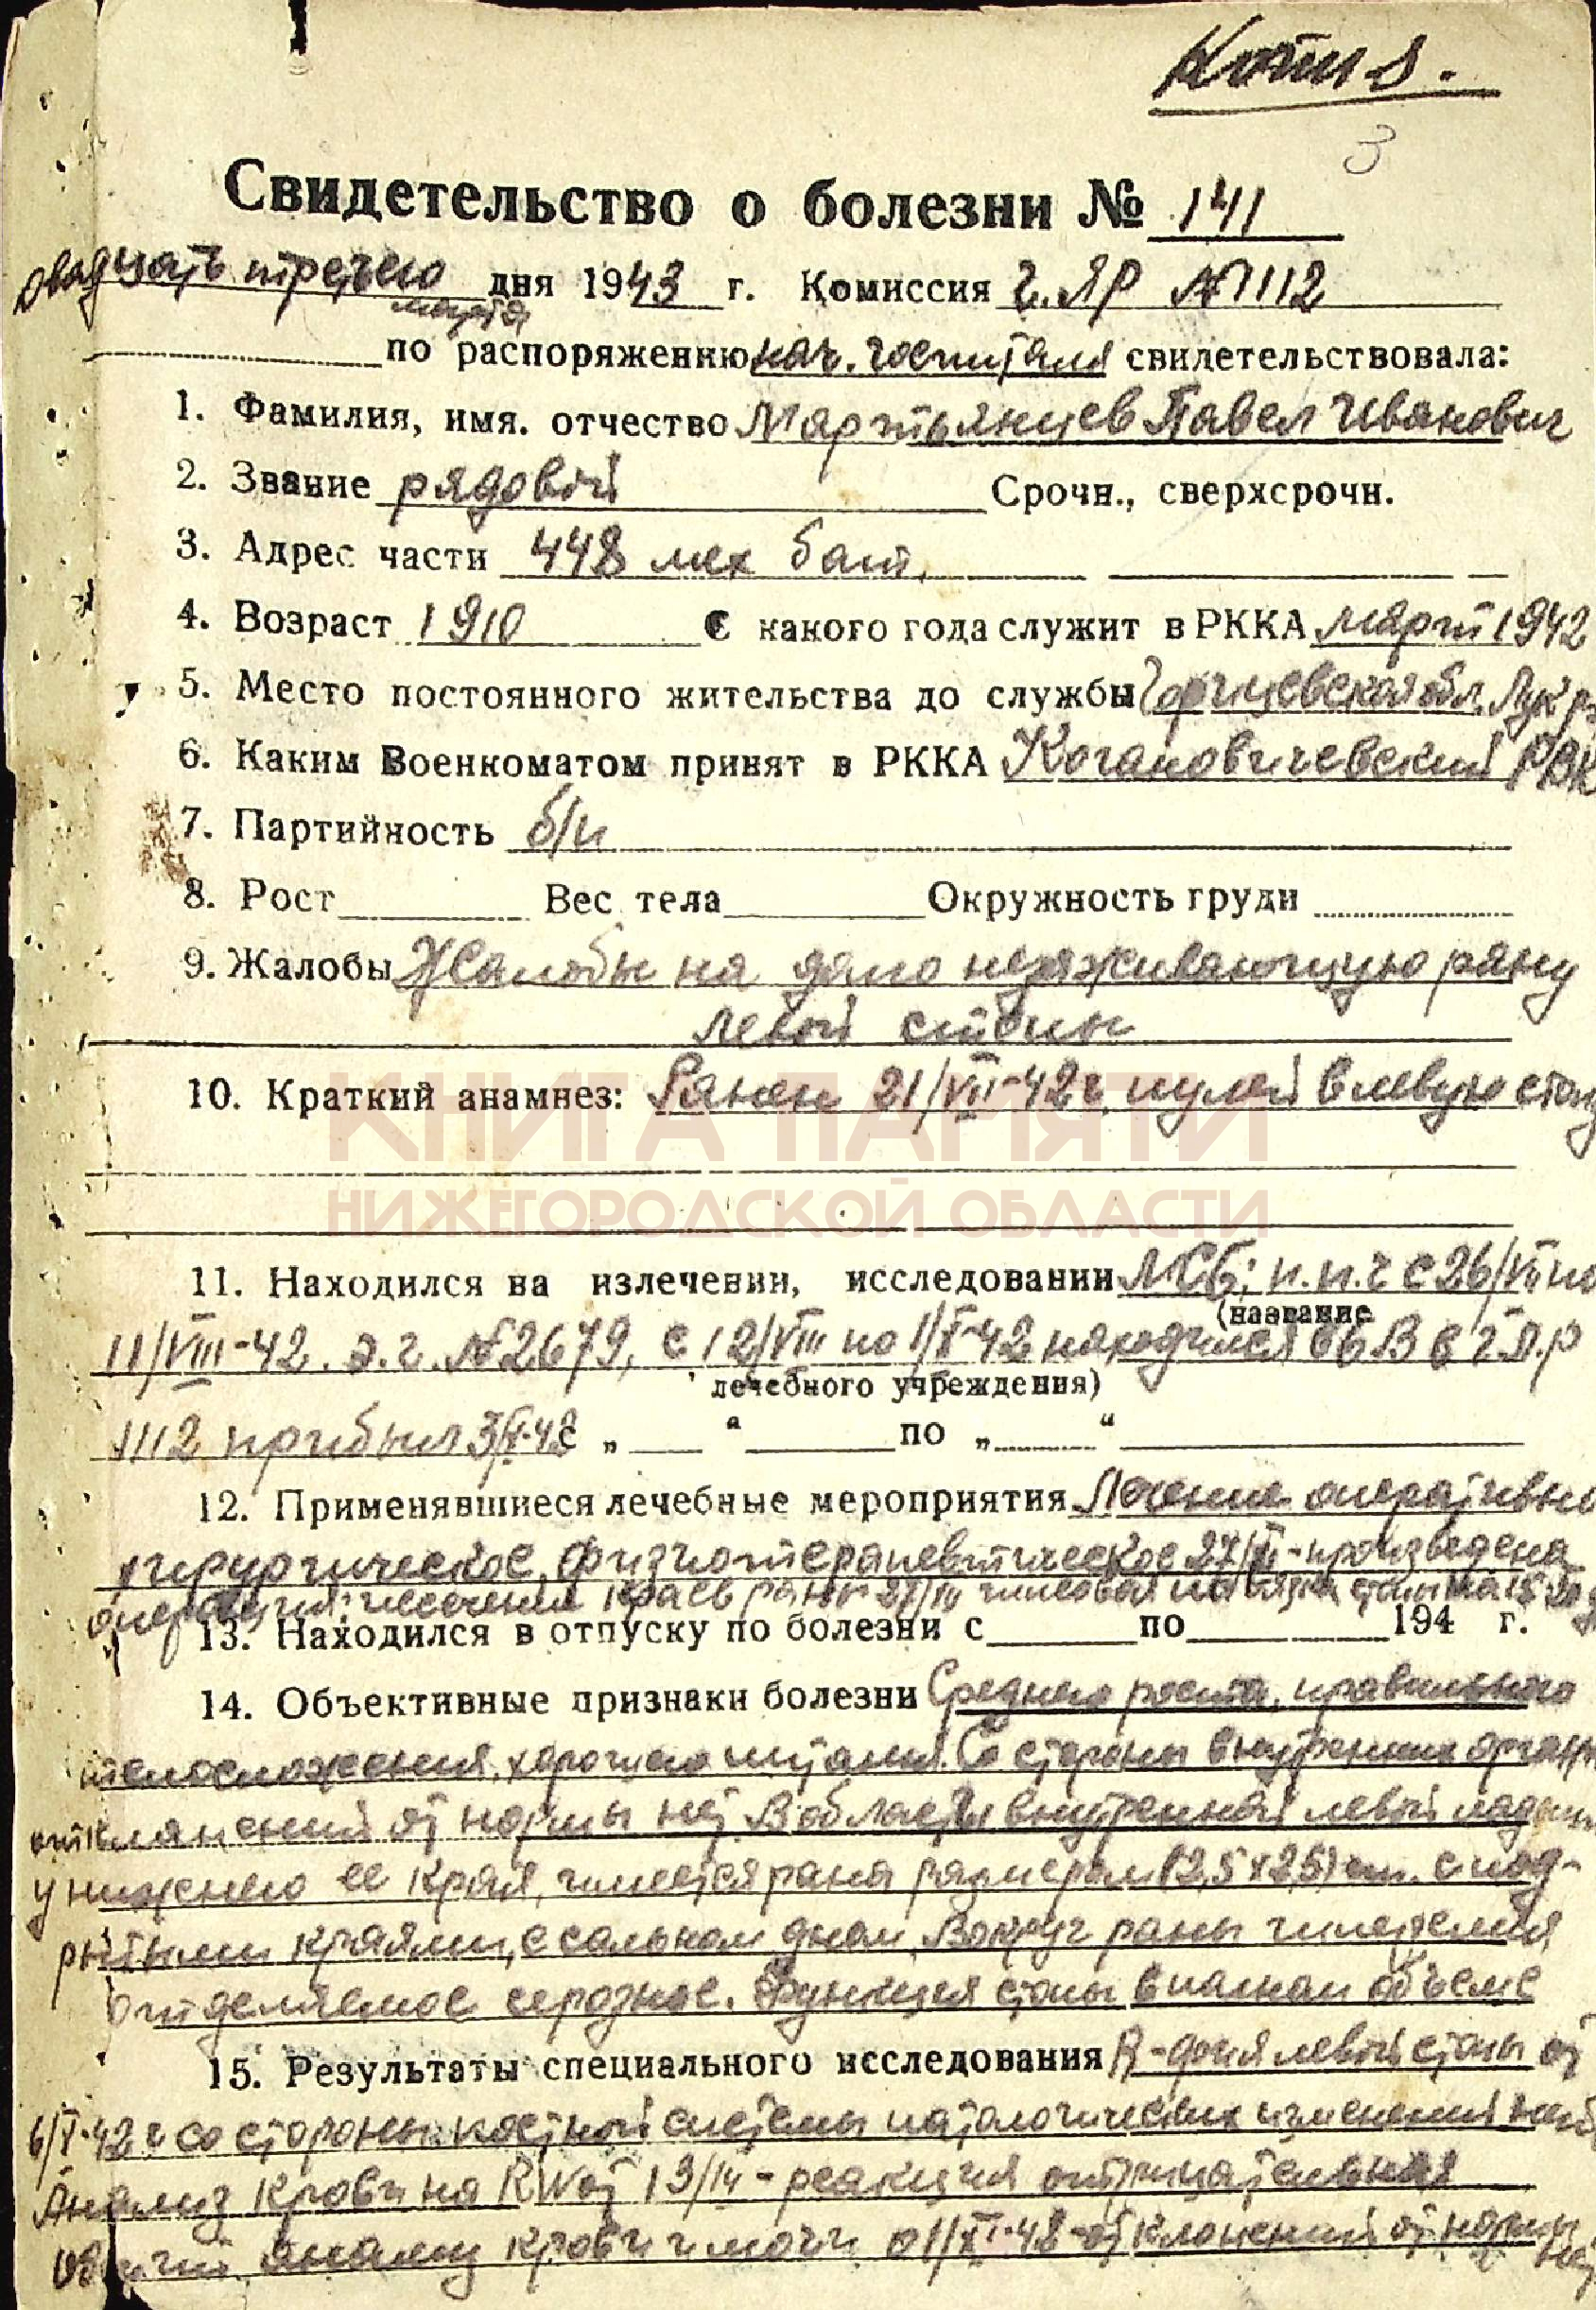 Копия.
3
Свидетельство о болезни № 141
двадцать третьего дня 1943 г. Комиссия г. ЯР № 1112
марта
по распоряжению нач. госпиталя свидетельствовала:
1. Фамилия, имя. отчество Мартьянцев Павел Иванович
2. Звание рядовой Срочн., сверхсрочн.
3. Адрес части 448 мех бат.
4. Возраст 1910 С какого года служит в РККА март 1942
5. Место постоянного жительства до службы обл.
6. Каким Военкоматом принят в РККА Когановичевский РВК
7. Партийность б/п
8. Рост Вес тела Окружность груди
9. Жалобы Жалобы на долго незаживающую рану
левой стопы
10. Краткий анамнез: Ранен 21/VII-42 г. пулей в левую стопу
КНИГА ПАМЯТИ
НИЖЕГОРОДСКОЙ ОБЛАСТИ
11. Находился на излечении, исследовании МСБ; п.п.г с 26/VII по
(название
11/VIII-42. э.г. № 2679, с 12/VIII по 1/X-42 находился в г Я.р
лечебного учреждения)
1112 прибыл 3/X-42 с „ “ по „ “
12. Применявшиеся лечебные мероприятия Лечение оперативно
хирургическое, физиотерапевтическое 27/XI-произведена
операция: иссечение краев раны гипсовая на
13. Находился в отпуску по болезни с по 194 г.
14. Объективные признаки болезни Среднего роста, правильного
телосложения, хорошего питания. Со стороны внутренних органов
отклонений от нормы нет. В области внутренней левой
у нижнего ее края, имеется рана размером (2,5 х 2,5) см. с под-
рытыми краями, с сальным дном. Вокруг раны гиперемия
отделяемое серозное. Функция стопы в полном объеме
15. Результаты специального исследования R- левой стопы от
6/X-42 г со стороны костной системы патологических изменений нет
Анализ крови на RW от 13/IV - реакция отрицательная
общий анализ крови и мочи от 1/XI-42 - отклонений от нормы
нет